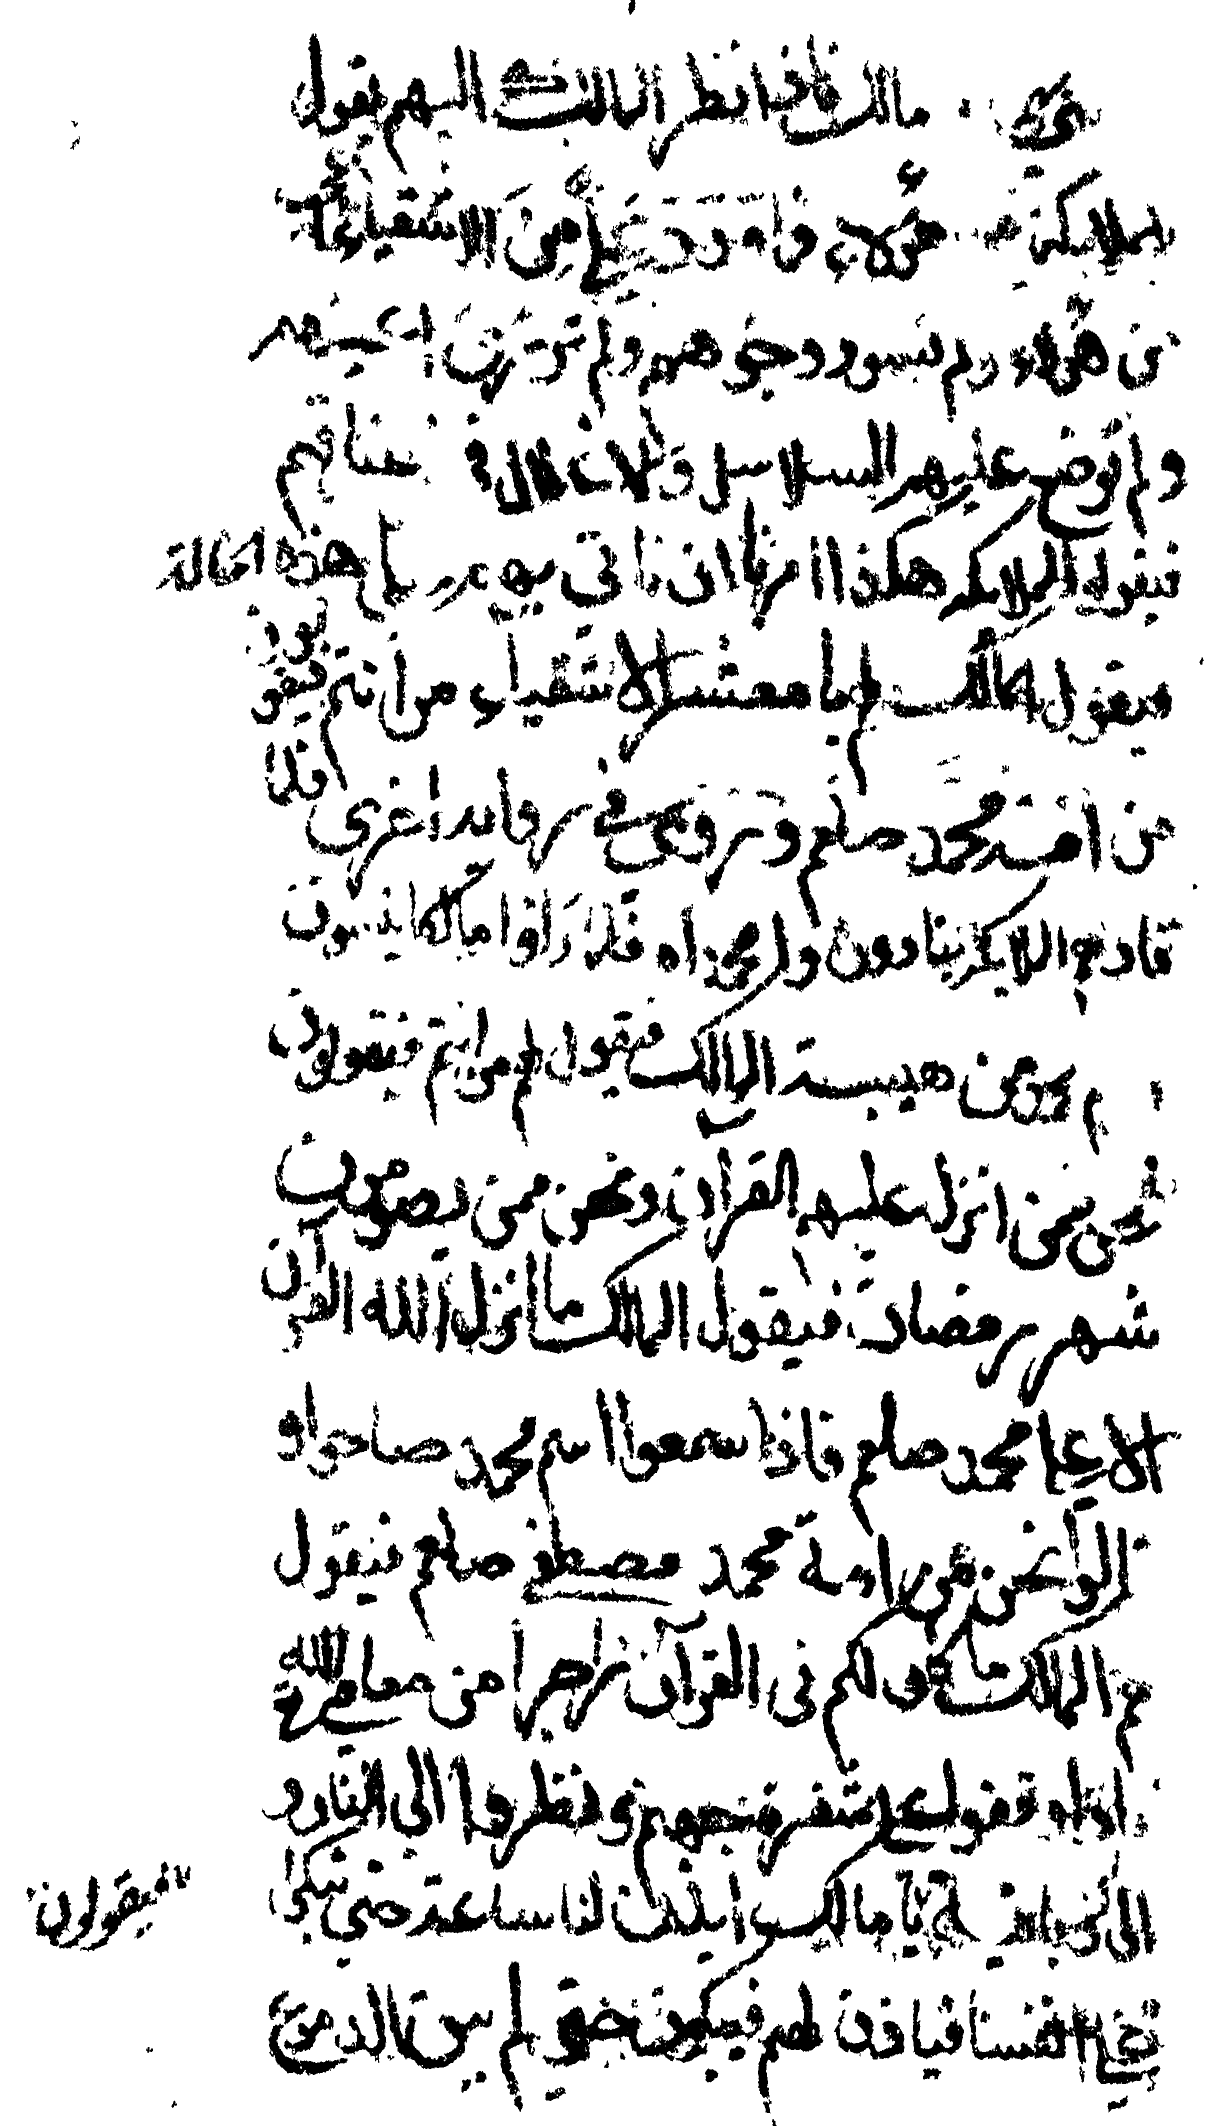 مالك فاذا نظر المالك اليهم يقول
للملايكة من هؤلاء فما ورد علي من الاشقياء
من هؤلاء ولم تسود وجوههم ولم تزرق اعينهم
ولم توضع عليهم السلاسل ولاغلال في عناقهم
فيقول الملايكه هكذا امرنا ان ناتي بهم علي هذه الحالة
فيقول المالك لهم يا معشر الاشقياء من انتم فيقولون
من امة محمد صلعم و
الملايكة ينادون وا محمداه فلما راوا مالكا ينسون
اسم محمد من هيبة المالك فيقول لهم من انتم فيقولون
نحن ممن انزل عليهم القرآن ونحن ممن يصومون
شهر رمضان فيقول المالك ما انزل الله القرآن
الا علي محمد صلعم فاذا سمعوا اسم محمد صاحوا و
قالوا نحن من امة محمد مصطفي صلعم فيقول
لهم المالك ما كان لكم في القرآن زاجرا من معاصي الله
فاذا وقفوا علي شفرة جهنم ونظروا الي النار و
الي الزبانية يا مالك ايذن لنا ساعة حتي نبكي فيقولون
علي انفسنا فياذن لهم فيبكون حتي لم يبق الدموع